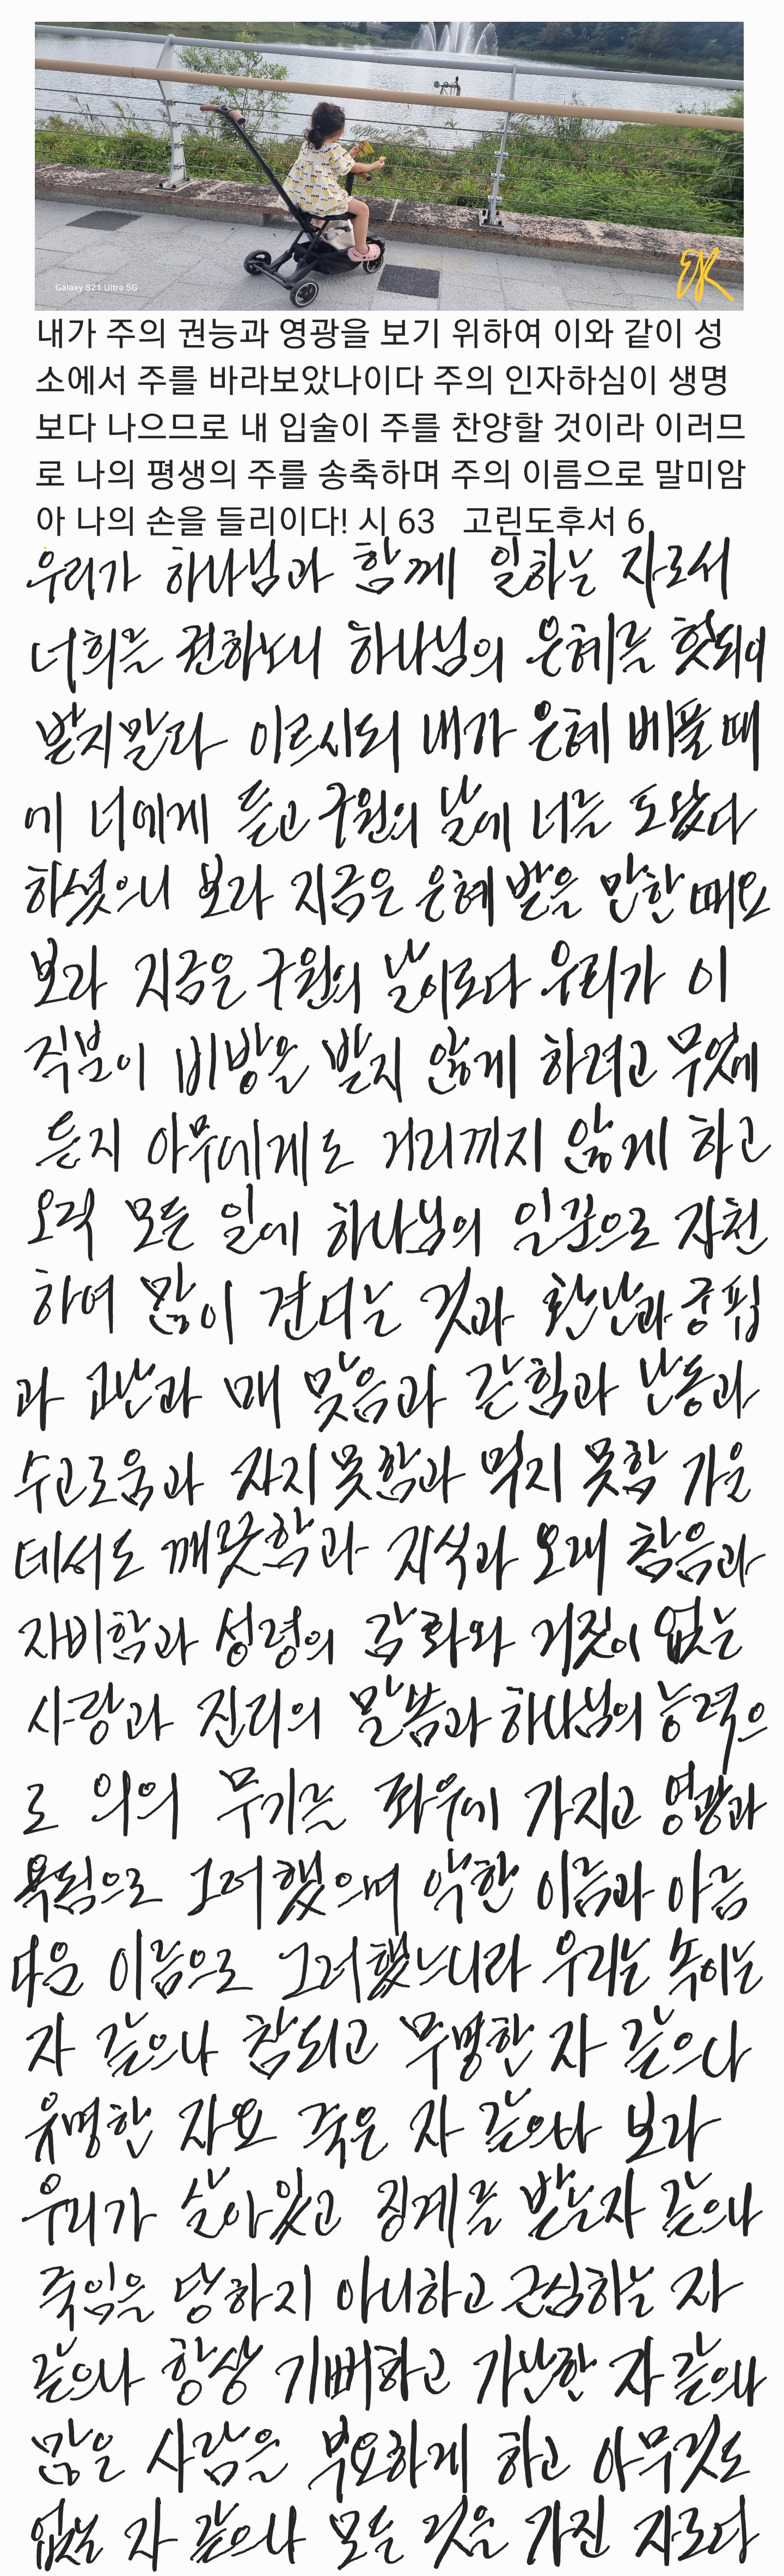 Galaxy S21 Ultra 5G
EK
내가 주의 권능과 영광을 보기 위하여 이와 같이 성
소에서 주를 바라보았나이다 주의 인자하심이 생명
보다 나으므로 내 입술이 주를 찬양할 것이라 이러므
로 나의 평생의 주를 송축하며 주의 이름으로 말미암
아 나의 손을 들리이다! 시 63 고린도후서 6
우리가 하나님과 함께 일하는 자로서
너희를 권하노니 하나님의 은혜를 헛되이
받지말라 이르시되 내가 은혜 베풀 때
에 너에게 듣고 구원의 날에 너를 도왔다
하셨으니 보라 지금은 은혜 받을 만한 때요
보라 지금은 구원의 날이로다 우리가 이
직분이 비방을 받지 않게 하려고 무엇에
든지 아무에게도 거리끼지 않게 하고
오직 모든 일에 하나님의 일꾼으로 자천
하여 많이 견디는 것과 환난과 궁핍
과 고난과 매 맞음과 갇힘과 난동과
수고로움과 자지 못함과 먹지 못함 가운
데서도 깨끗함과 지식과 오래 참음과
자비함과 성령의 감화와 거짓이 없는
사랑과 진리의 말씀과 하나님의 능력으
로 의의 무기를 좌우에 가지고 영광과
욕됨으로 그러했으며 악한 이름과 아름
다운 이름으로 그러했느니라 우리는 속이는
자 같으나 참되고 무명한 자 같으나
유명한 자요 죽은 자 같으나 보라
우리가 살아있고 징계를 받는자 같으나
죽임을 당하지 아니하고 근심하는 자
같으나 항상 기뻐하고 가난한 자 같으나
많은 사람을 부요하게 하고 아무것도
없는 자 같으나 모든 것을 가진 자로다